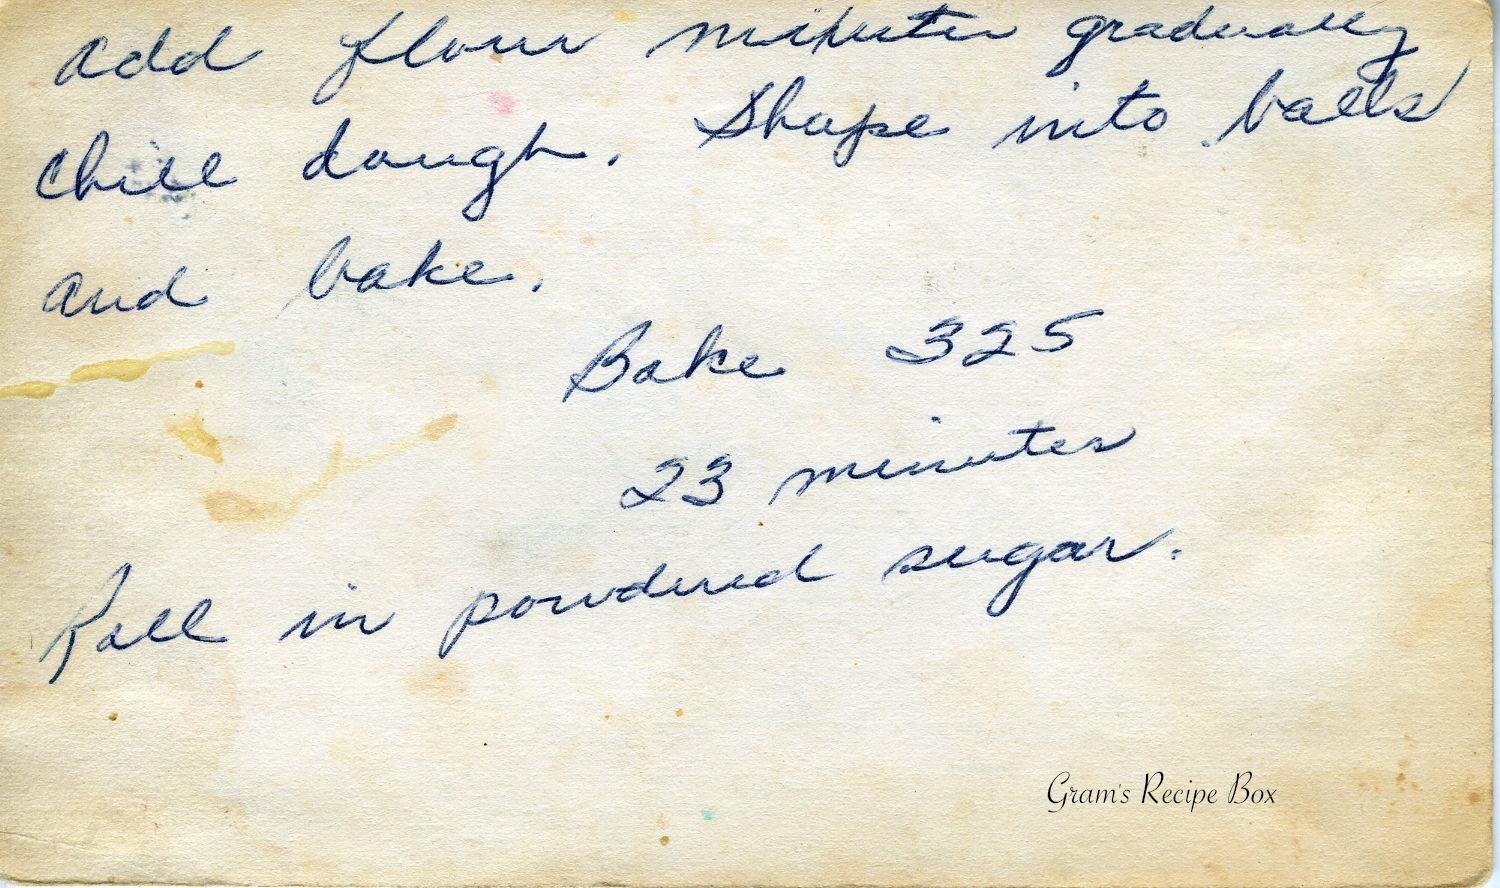 add flour mixture gradually
Chill dough. Shape into balls
and bake.
Bake 325
23 minutes
Roll in powdered sugar.
Gram's Recipe Box